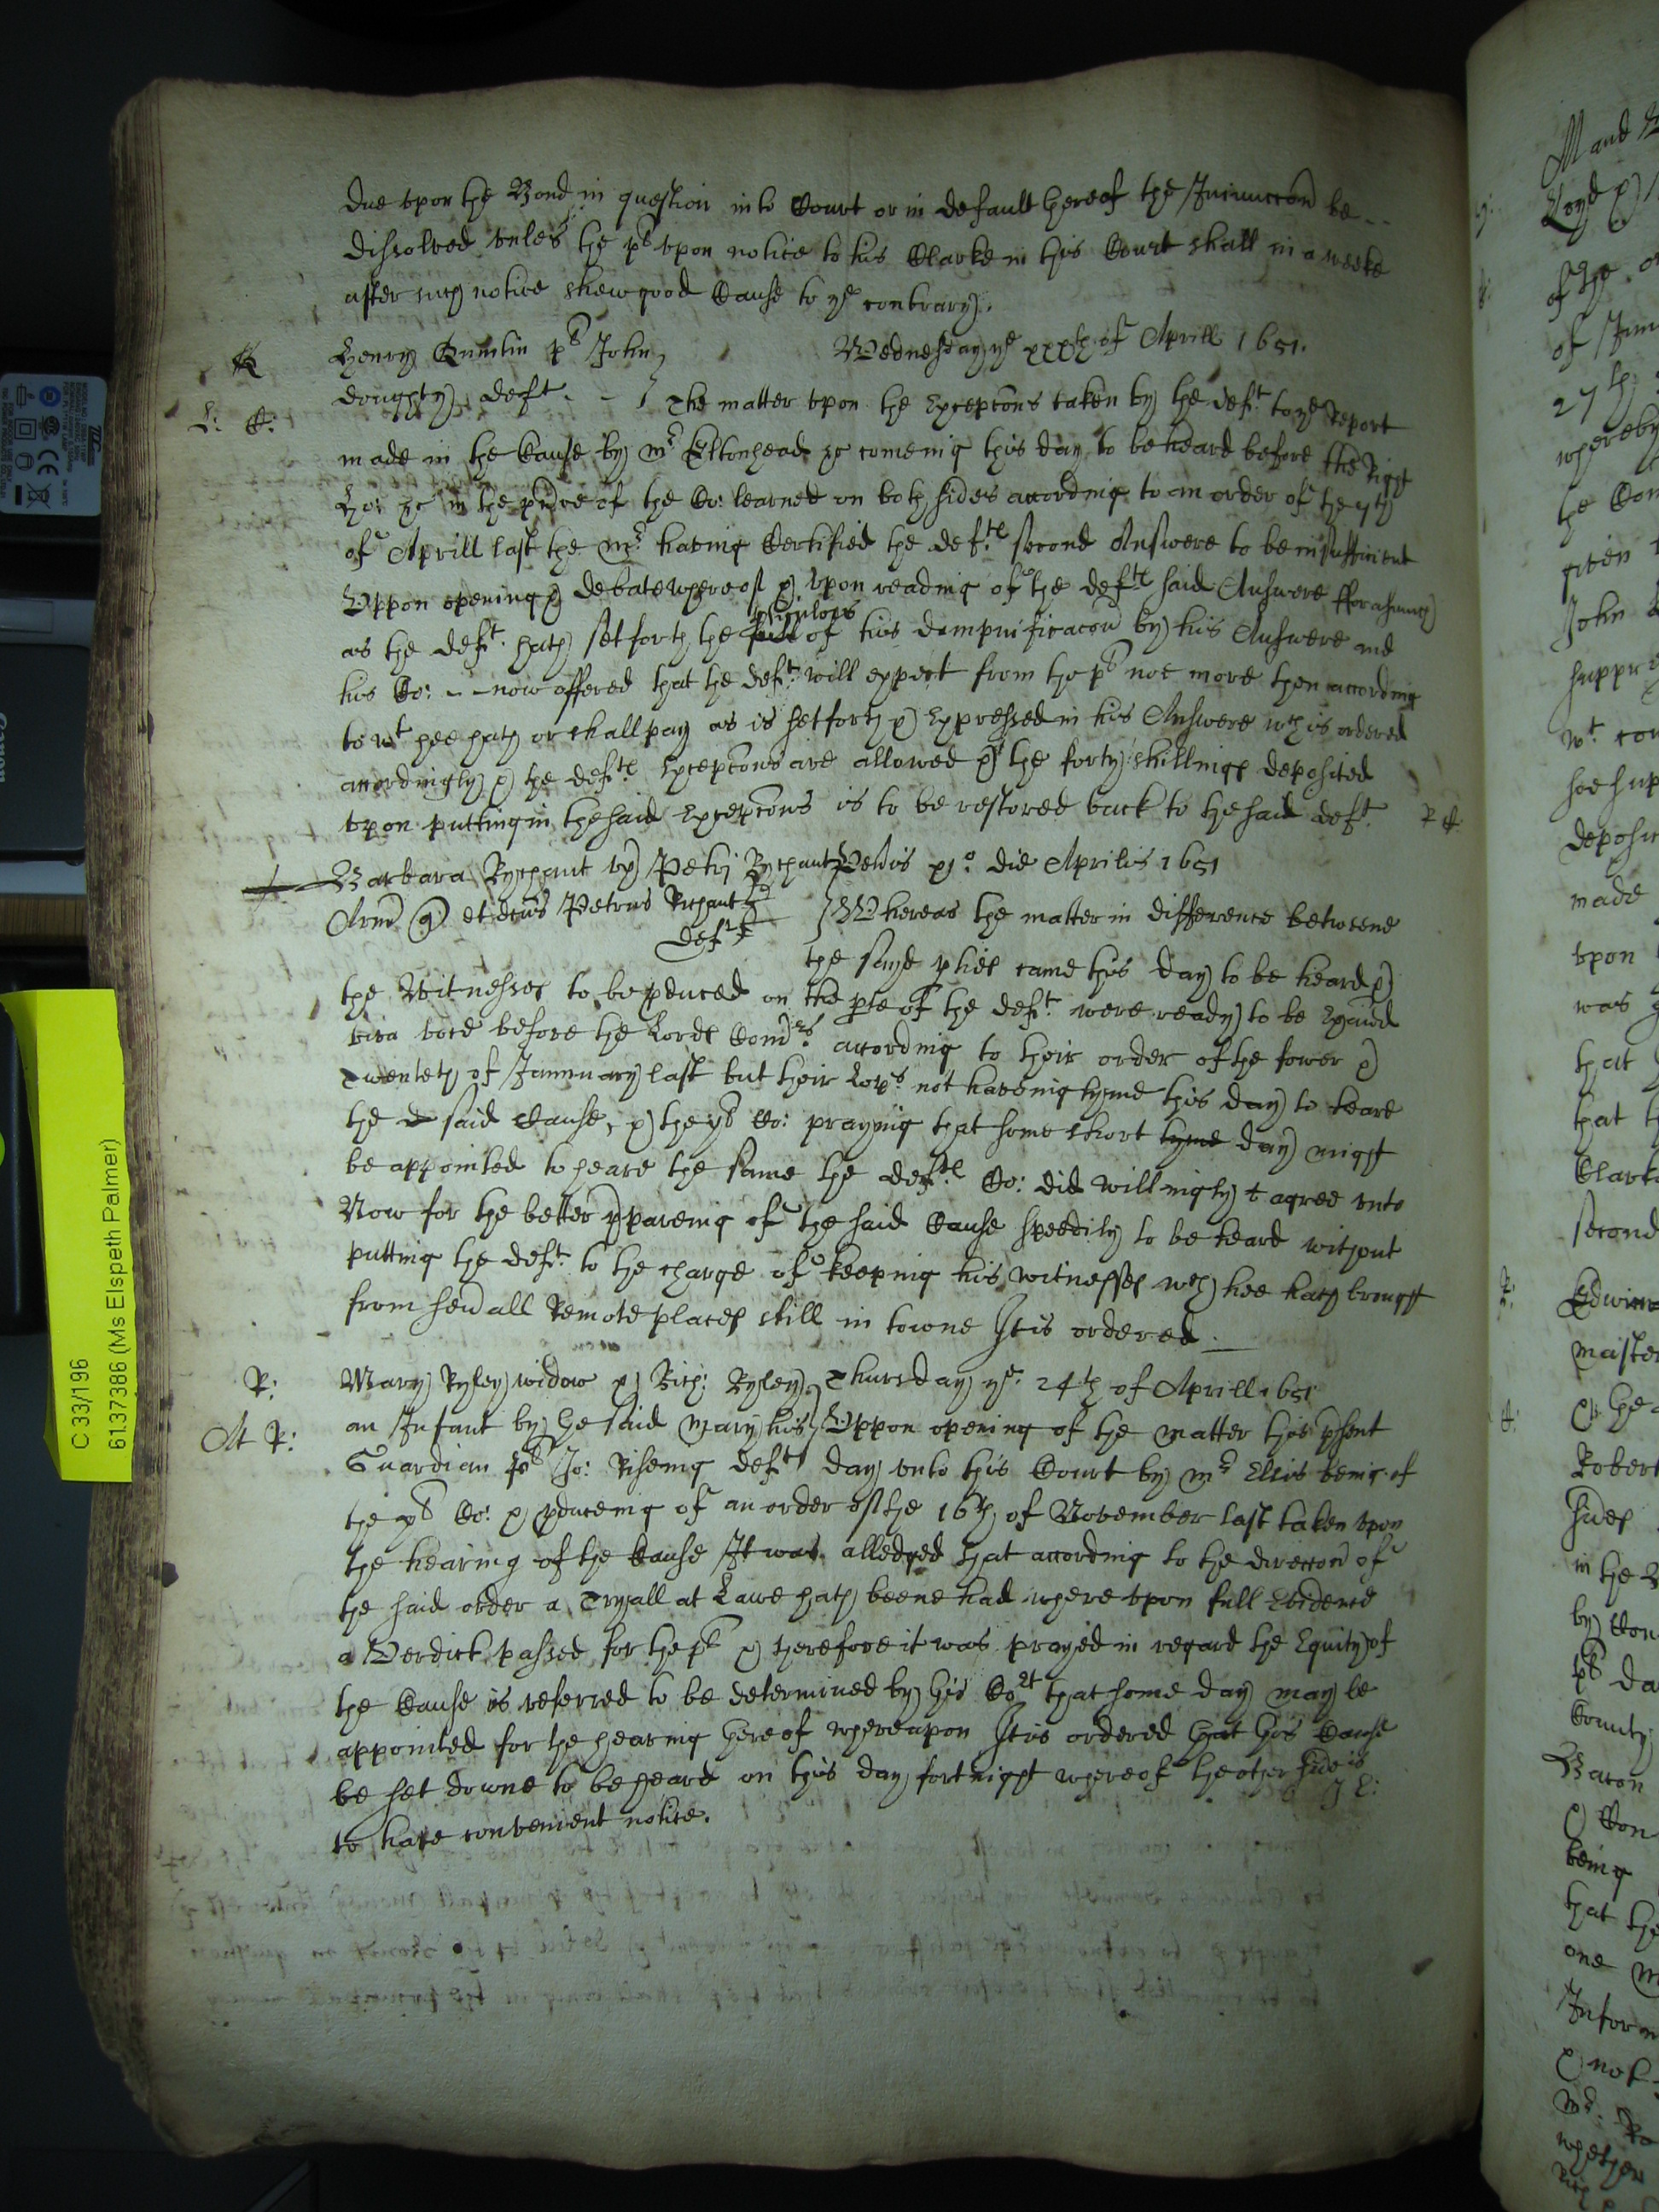 due vpon the Bond in question into Court or in default thereof the Iniunccon be --
dissolved vnles the pt vpon notice to his Clarke in this Court shall in a weeke
after such notice shew good Cause to ye contrary.
Q
Henry Quintin pt John
Wednesday ye xxxth of Aprill 1651.
doughty deft. - -
L: C:
The matter vpon the Excepcons taken by the deft. to ye Report
made in the Cause by mr Eltonhead &c comeing this day to be heard before the Right
Ho: &c in the pnce of the Co: learned on both sides according to an order of the 9th
of Aprill last the mr. having Certified the defts second Answere to be insufficient
Vppon opening & debate whereof & vpon reading of the defts said Answere fforasmuch
as the deft. hath set forth the full of his dampnificacon by his Answere and
perticulers
his Co: - - now offered that the deft. will expect from the pt noe more then according
to wt hee hath or shall pay as is set forth & Expressed in his Answere wch is ordered
accordingly & the defts Excepcons are allowed & the forty shillings deposited
vpon putting in the said Excepcons is to be restored back to the said deft.
R C
Barbara Rychaut vx Petri Rychaut
Veneris xjo. die Aprilis 1651
Arm Q et dcus Petrus Richaut
defts
Whereas the matter in difference betweene
the sayd pties came this day to be heard &
the Witnesses to be pduced on the pte of the deft. were ready to be Exaied
viva voce before the Lords Comrs. according to their order of the fower &
Twenteth of Jannuary last but their Lopps. not haveing tyme this day to heare
the said Cause, & the pts Co: praying that some short tyme day might
be appointed to heare the same the defts Co: did willingly t agree vnto
Now for the better ppareing of the said Cause speedily to be heard without
putting the deft. to the charge of keeping his witnesses wch hee hath brought
from seuall Remote places still in towne It is ordered.
R:
Mary Ryley widow & Rich: Ryley
Thursday ye. 24th of Aprill 1651
At R:
an Infant by the said Mary his
Vppon opening of the matter this psent
Guardian pts Jo: Riseing deft
day vnto this Court by mr Ellis being of
the pts Co: & pduceing of an order of the 16th of November last taken vpon
the hearing of the Cause It was alledged that according to the direccon of
the said order a Tryall at Lawe hath beene had where vpon full Evidence
a Verdict passed for the pt & therefore it was prayed in regard the Equity of
the Cause is referred to be determined by this Cort that some day may be
appointed for the hearing thereof whereupon It is ordered that this Cause
be set downe to be heard on this day fortnight whereof the other side is
to have convenient notice.
J E:
C 33/196
61.37386 (Ms Elspeth Palmer)
Canon
M and
Loyd
of the
of
27th
whereby
the Com
given
John
suppr
wt. con
hee sup
deposit
made
vpon
was
that
that th
Clark
second
Edwin
maister
Robert
sides
in the
by Con
pt da
County
Baron
& Con
being
that the
one m
Inform
& not
mr.
whether